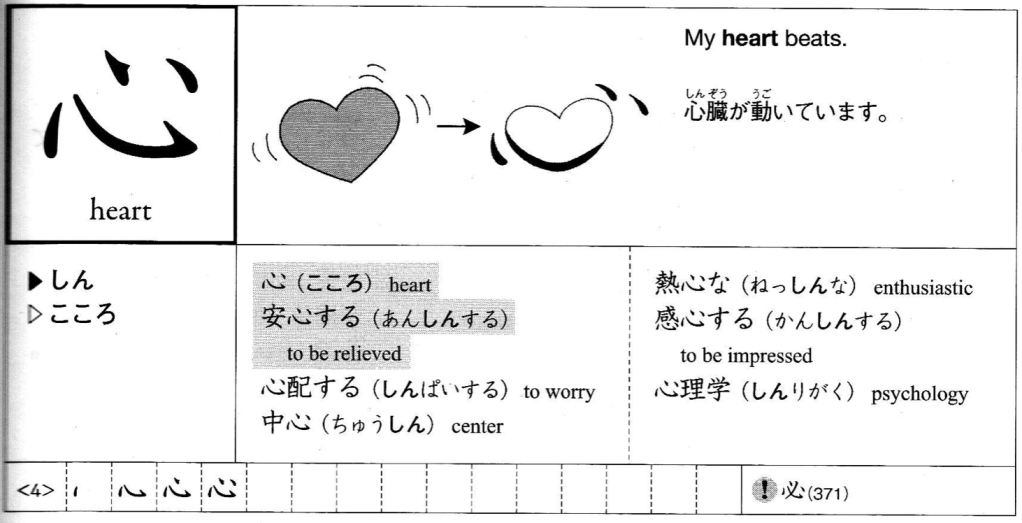 心
heart
My heart beats.
しんぞう うご
心臓が動いています。
▶しん
▷こころ
心（こころ） heart
安心する（あんしんする）
to be relieved
心配する（しんぱいする） to worry
中心（ちゅうしん） center
熱心な（ねっしんな） enthusiastic
感心する（かんしんする）
to be impressed
心理学（しんりがく） psychology
<4> 心
! 必(371)